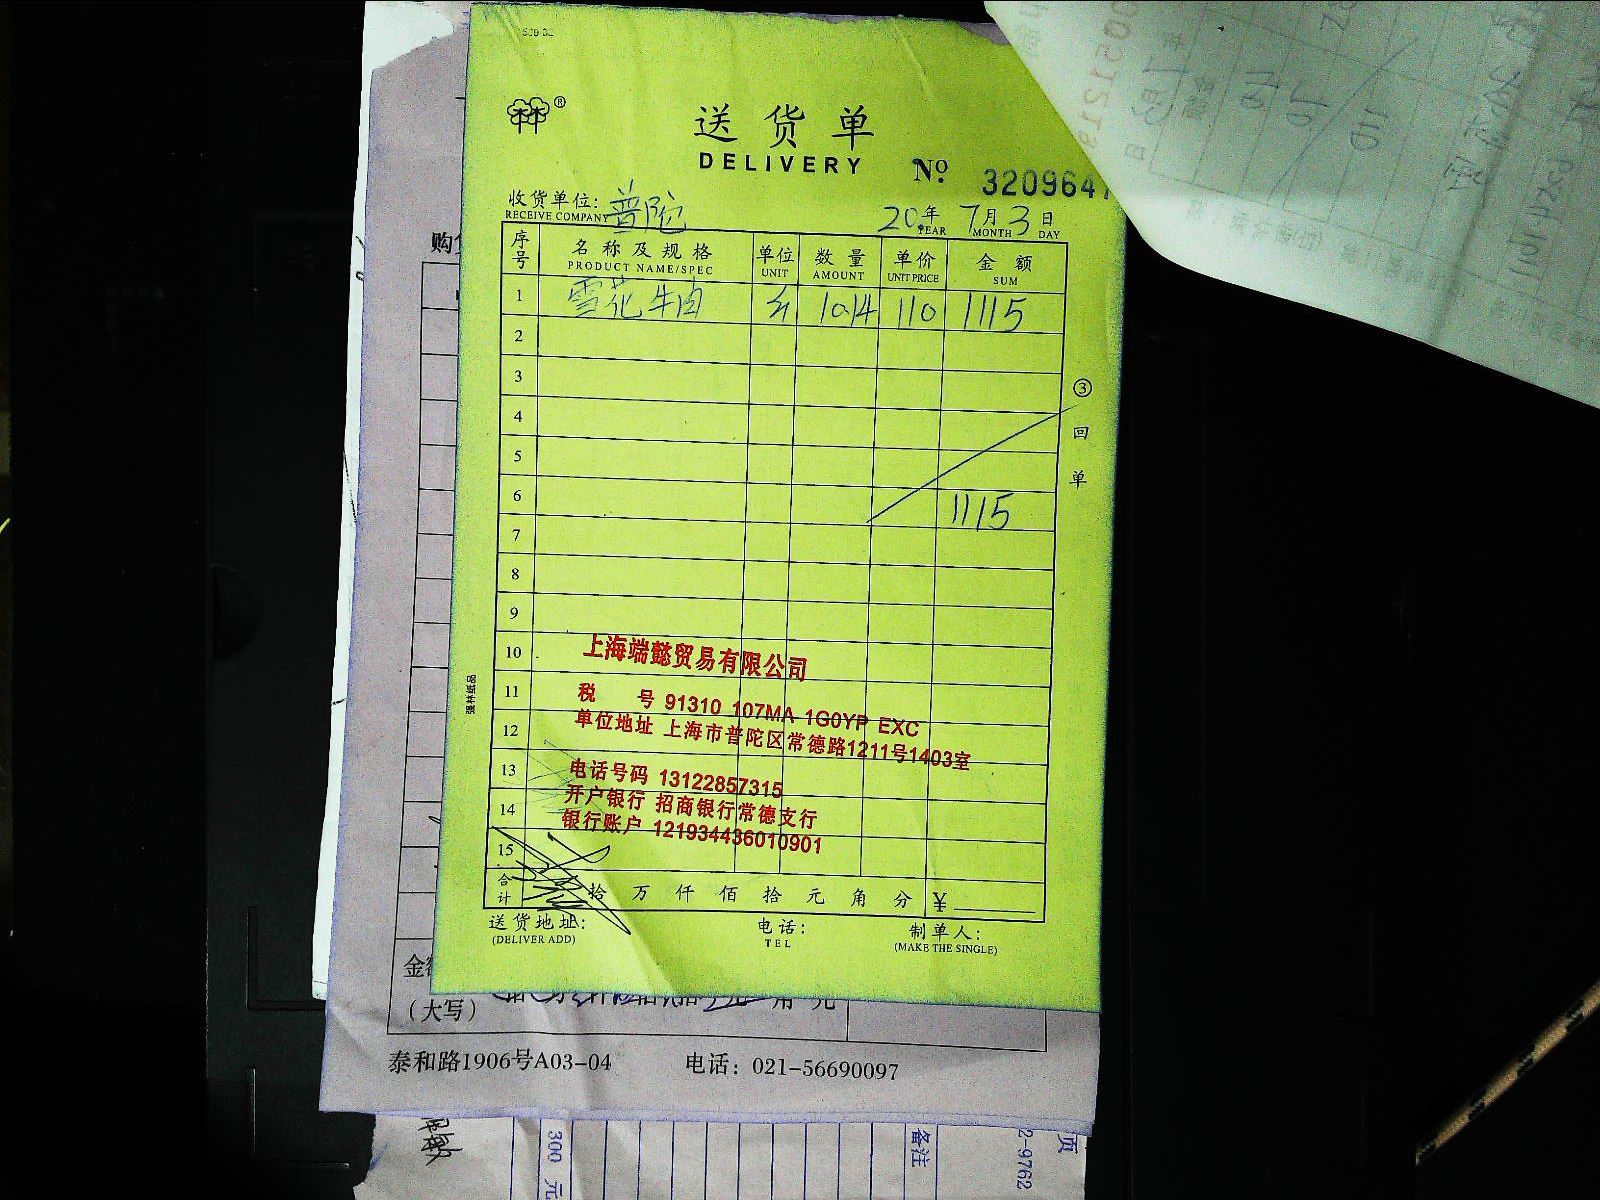 送货单
DELIVERY
No. 320964
收货单位: 普陀
RECEIVE COMPANY
20年 7月 3日
YEAR MONTH DAY
序号 名称及规格 单位 数量 单价 金额
PRODUCT NAME/SPEC UNIT AMOUNT UNIT PRICE SUM
1 雪花牛肉 斤 10.14 110 1115
2
3
4
5
6 1115
7
8
9
10
11
12
13
14
15
③回单
强林纸品
上海端懿贸易有限公司
税 号 91310 107MA 1G0YP EXC
单位地址 上海市普陀区常德路1211号1403室
电话号码 13122857315
开户银行 招商银行常德支行
银行账户 121934436010901
合计 拾 万 仟 佰 拾 元 角 分 ¥
送货地址: 电话: 制单人:
(DELIVER ADD) TEL (MAKE THE SINGLE)
购
金
(大写)
泰和路1906号A03-04 电话: 021-56690097
300 元
备注
2-9762
页